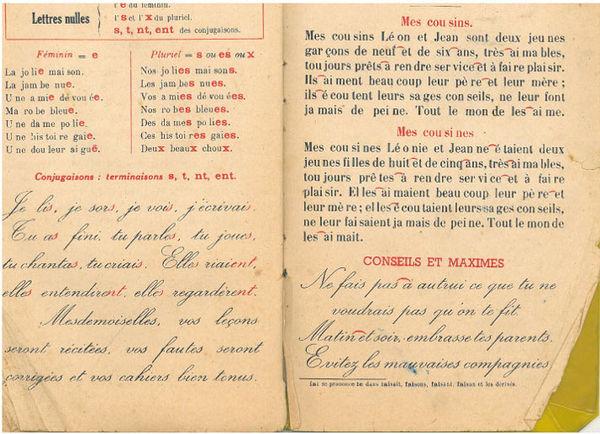 Lettres nulles
l's et l'x du pluriel.
s, t, nt, ent des conjugaisons.
Féminin = e
La jo lie mai son.
La jam be nue.
U ne a mie dé vou ée.
Ma ro be bleue.
U ne da me po lie.
U ne his toi re gaie.
U ne dou leur ai guë.
Pluriel = s ou es ou x
Nos jo lies mai sons.
Les jam bes nues.
Vos a mies dé vou ées.
Nos ro bes bleues.
Des da mes po lies.
Ces his toi res gaies.
Deux beaux choux.
Conjugaisons : terminaisons s, t, nt, ent.
Je lis, je sors, je vois, j'écrivais.
Tu as fini, tu parles, tu joues,
tu chantas, tu criais. Elles riaient,
elles entendirent, elles regardèrent.
Mesdemoiselles, vos leçons
seront récitées, vos fautes seront
corrigées et vos cahiers bien tenus.
Mes cou sins.
Mes cou sins Lé on et Jean sont deux jeu nes
gar çons de neuf et de six ans, très ai ma bles,
tou jours prêts à ren dre ser vice et à fai re plai sir.
Ils ai ment beau coup leur pè re et leur mè re ;
ils é cou tent leurs sa ges con seils, ne leur font
ja mais de pei ne. Tout le mon de les ai me.
Mes cou si nes
Mes cou si nes Lé o nie et Jean ne é taient deux
jeu nes fil les de huit et de cinq ans, très ai ma bles,
tou jours prê tes à ren dre ser vi ce et à fai re
plai sir. El les ai maient beau coup leur pè re et
leur mè re ; el les é cou taient leurs sa ges con seils,
ne leur fai saient ja mais de pei ne. Tout le mon de
les ai mait.
CONSEILS ET MAXIMES
Ne fais pas à autrui ce que tu ne
voudrais pas qu'on te fît.
Matin et soir, embrasse tes parents.
Evitez les mauvaises compagnies
fai se prononce fe dans faisait, faisons, faisant, faison et les dérivés.